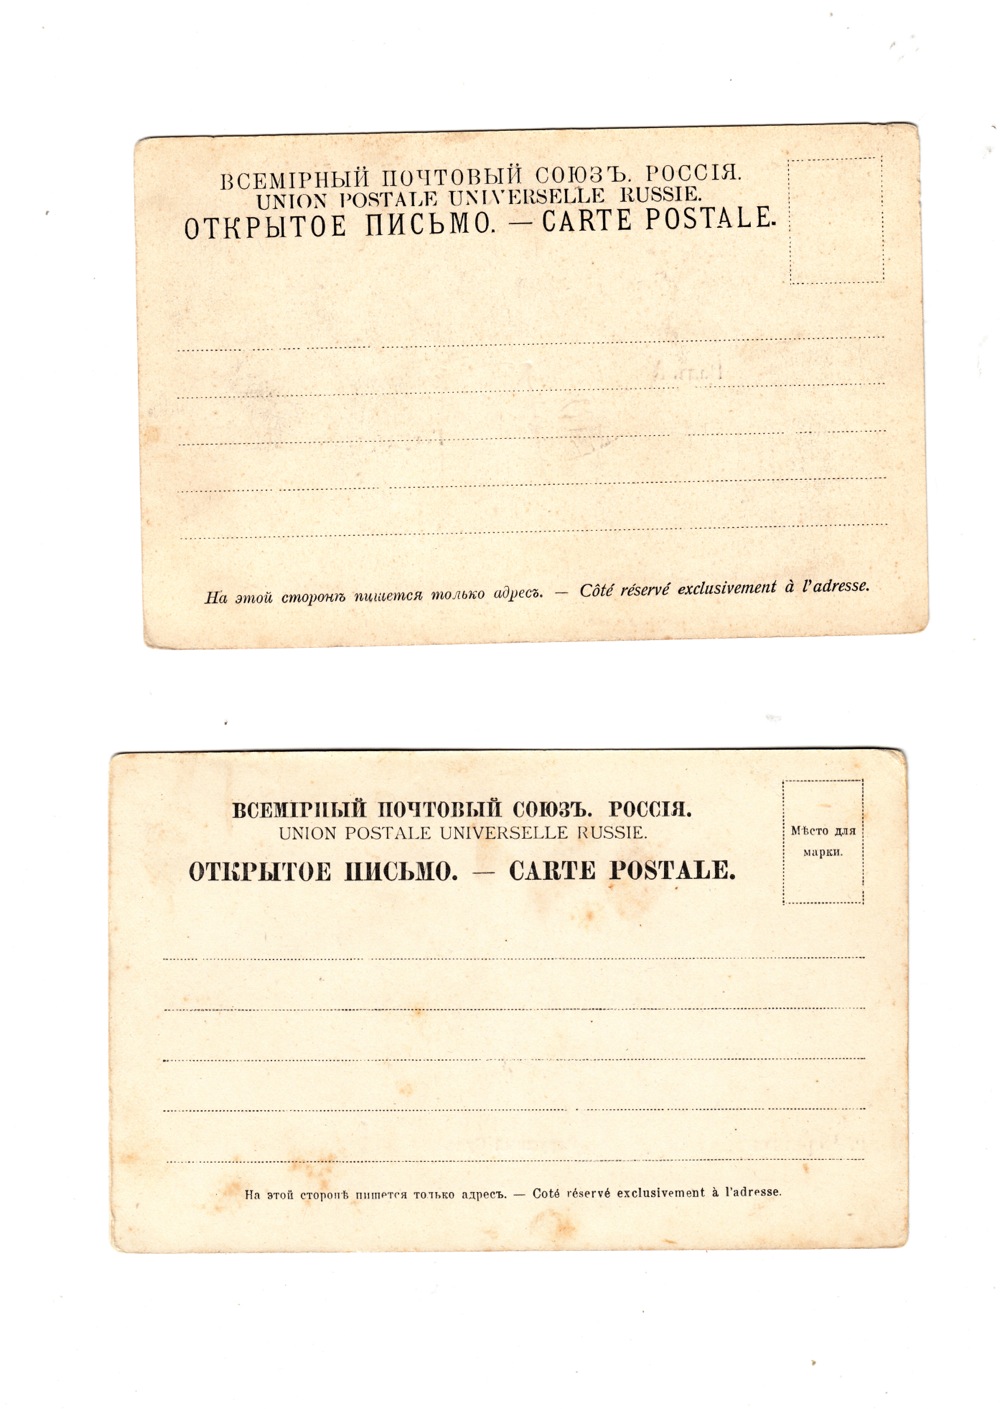 ВСЕМІРНЫЙ ПОЧТОВЫЙ СОЮЗЪ. РОССІЯ.
UNION POSTALE UNIVERSELLE RUSSIE.
ОТКРЫТОЕ ПИСЬМО. — CARTE POSTALE.
На этой сторонѣ пишется только адресъ. — Côté réservé exclusivement à l'adresse.
ВСЕМІРНЫЙ ПОЧТОВЫЙ СОЮЗЪ. РОССІЯ.
UNION POSTALE UNIVERSELLE RUSSIE.
ОТКРЫТОЕ ПИСЬМО. — CARTE POSTALE.
Мѣсто для
марки.
На этой сторонѣ пишется только адресъ. — Coté réservé exclusivement à l'adresse.